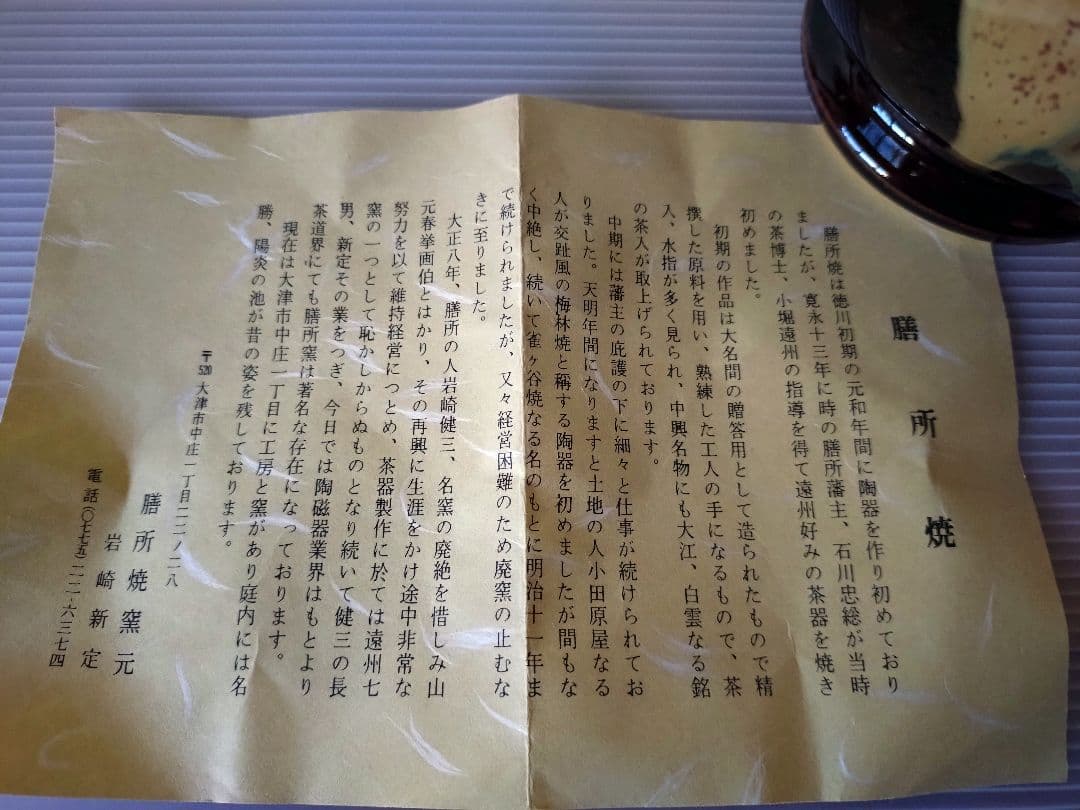 膳所焼
膳所焼は徳川初期の元和年間に陶器を作り初めており
ましたが、寛永十三年に時の膳所藩主、石川忠総が当時
の茶博士、小堀遠州の指導を得て遠州好みの茶器を焼き
初めました。
初期の作品は大名間の贈答用として造られたもので精
撰した原料を用い、熟練した工人の手になるもので、茶
入、水指が多く見られ、中興名物にも大江、白雲なる銘
の茶人が取上げられております。
中期には藩主の庇護の下に細々と仕事が続けられてお
りました。天明年間になりますと土地の人小田原屋なる
人が交趾風の梅林焼と稱する陶器を初めましたが間もな
く中絶し、続いて雀ヶ谷焼なる名のもとに明治十一年ま
で続けられましたが、又々経営困難のため廃窯の止むな
きに至りました。
大正八年、膳所の人岩崎健三、名窯の廃絶を惜しみ山
元春挙画伯とはかり、その再興に生涯をかけ途中非常な
努力を以て維持経営につとめ、茶器製作に於ては遠州七
窯の一つとして恥かしからぬものとなり続いて健三の長
男、新定その業をつぎ、今日では陶磁器業界はもとより
茶道界にても膳所窯は著名な存在になっております。
現在は大津市中庄一丁目に工房と窯があり庭内には名
勝、陽炎の池が昔の姿を残しております。
〒520 大津市中庄一丁目二二ノ二八
膳所焼窯元
岩崎新定
電話(〇七七五)二二-六三七四